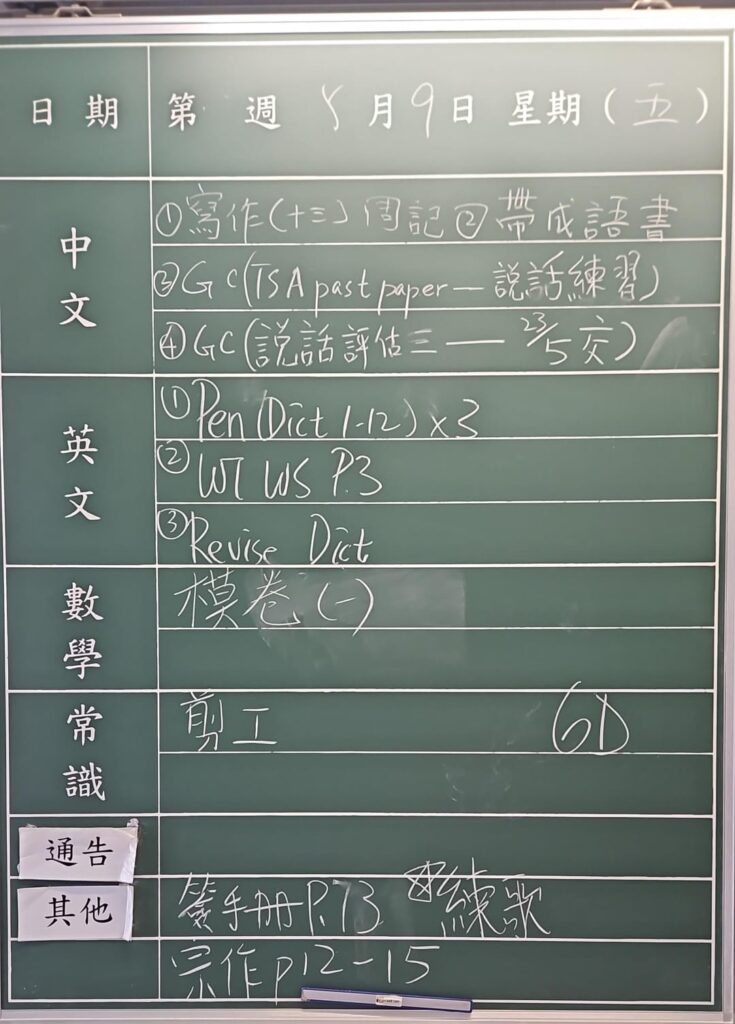 日期 第 週 5月9日 星期(五)
中文
①寫作(十三)周記②帶成語書
③GC(TSA past paper—説話練習)
④GC(説話評估三——23/5交)
英文
①Pen(Dict 1-12)x3
②WT WS P.3
③Revise Dict
數學
模卷(一)
常識
剪工 6D
通告
其他
簽手冊P.73 *練歌
宗作p12-15